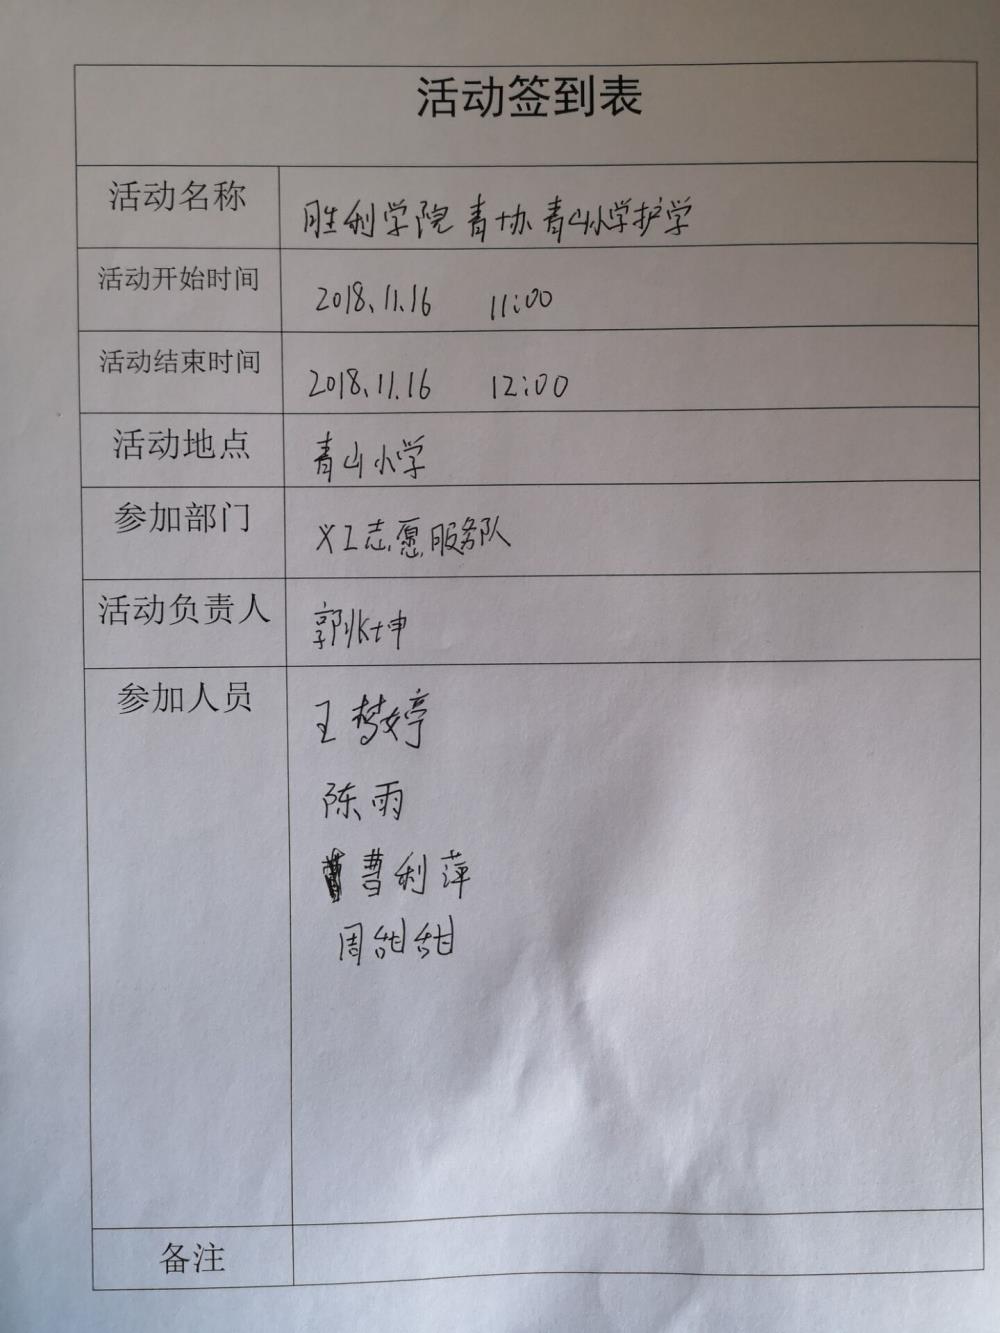 活动签到表
活动名称 胜利学院青协青山小学护学
活动开始时间 2018.11.16 11:00
活动结束时间 2018.11.16 12:00
活动地点 青山小学
参加部门 义工志愿服务队
活动负责人 郭兆坤
参加人员 王梦婷
陈雨
曹利萍
周甜甜
备注